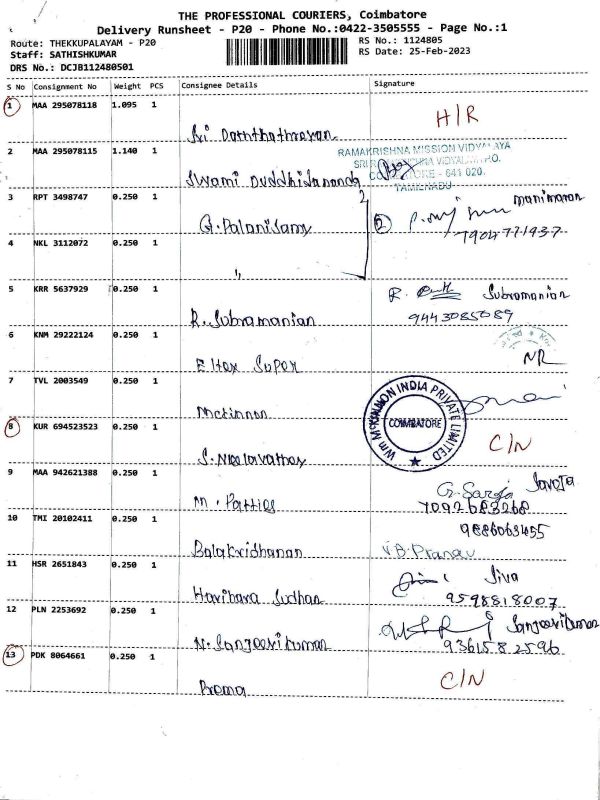 THE PROFESSIONAL COURIERS, Coimbatore
Delivery Runsheet - P20 - Phone No.:0422-3505555 - Page No.:1
Route: THEKKUPALAYAM - P20
RS No.: 1124805
Staff: SATHISHKUMAR
RS Date: 25-Feb-2023
DRS No.: DCJB112480501
S No Consignment No Weight PCS Consignee Details Signature
1 MAA 295078118 1.095 1
H/R
Sri Daththathreyan
2 MAA 295078115 1.140 1
RAMAKRISHNA MISSION VIDYALAYA
641 020.
TAMILNADU
Swami Buddhidananda
3 RPT 3498747 0.250 1
2
manimaran
G. Palanisamy
7904771937
4 NKL 3112072 0.250 1
"
5 KRR 5637929 0.250 1
R. Subramanian
9443085089
R. Subramanian
6 KNM 29222124 0.250 1
NR
Eltex Super
7 TVL 2003549 0.250 1
Mckinnon
WM MCKINNON INDIA PRIVATE LIMITED
COIMBATORE
8 KUR 694523523 0.250 1
C/N
S. Neelavathy
9 MAA 942621388 0.250 1
7092683268
M. Patties
10 TMI 20102411 0.250 1
9886063455
Balakridhanan
V.B. Pranav
11 HSR 2651843 0.250 1
Siva
Harihara Sudhan
9598818007
12 PLN 2253692 0.250 1
Sanjeevikumar
N. Sanjeevikumar
9361582596
13 PDK 8064661 0.250 1
C/N
Prema